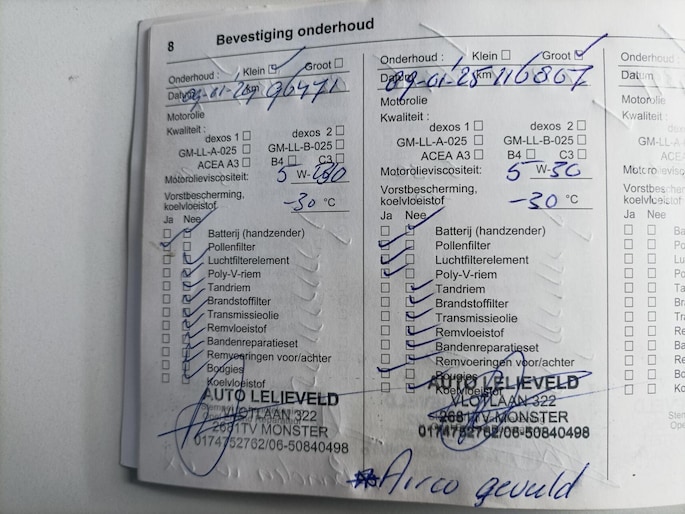 8 Bevestiging onderhoud
Onderhoud : Klein Groot
Datum 09-01-24 km 96471
Motorolie
Kwaliteit :
dexos 1 dexos 2
GM-LL-A-025 GM-LL-B-025
ACEA A3 B4 C3
Motorolieviscositeit: 5 W-30
Vorstbescherming,
koelvloeistof -30 °C
Ja Nee
Batterij (handzender)
Pollenfilter
Luchtfilterelement
Poly-V-riem
Tandriem
Brandstoffilter
Transmissieolie
Remvloeistof
Bandenreparatieset
Remvoeringen voor/achter
Bougies
Koelvloeistof
AUTO LELIEVELD
VLOTLAAN 322
2681TV MONSTER
0174752762/06-50840498
Onderhoud : Klein Groot
Datum 09-01-25 km 116867
Motorolie
Kwaliteit :
dexos 1 dexos 2
GM-LL-A-025 GM-LL-B-025
ACEA A3 B4 C3
Motorolieviscositeit: 5 W-30
Vorstbescherming,
koelvloeistof -30 °C
Ja Nee
Batterij (handzender)
Pollenfilter
Luchtfilterelement
Poly-V-riem
Tandriem
Brandstoffilter
Transmissieolie
Remvloeistof
Bandenreparatieset
Remvoeringen voor/achter
Bougies
Koelvloeistof
AUTO LELIEVELD
VLOTLAAN 322
2681TV MONSTER
0174752762/06-50840498
Airco gevuld
Onderhoud :
Datum
Motorolie
Kwaliteit :
Ja Nee